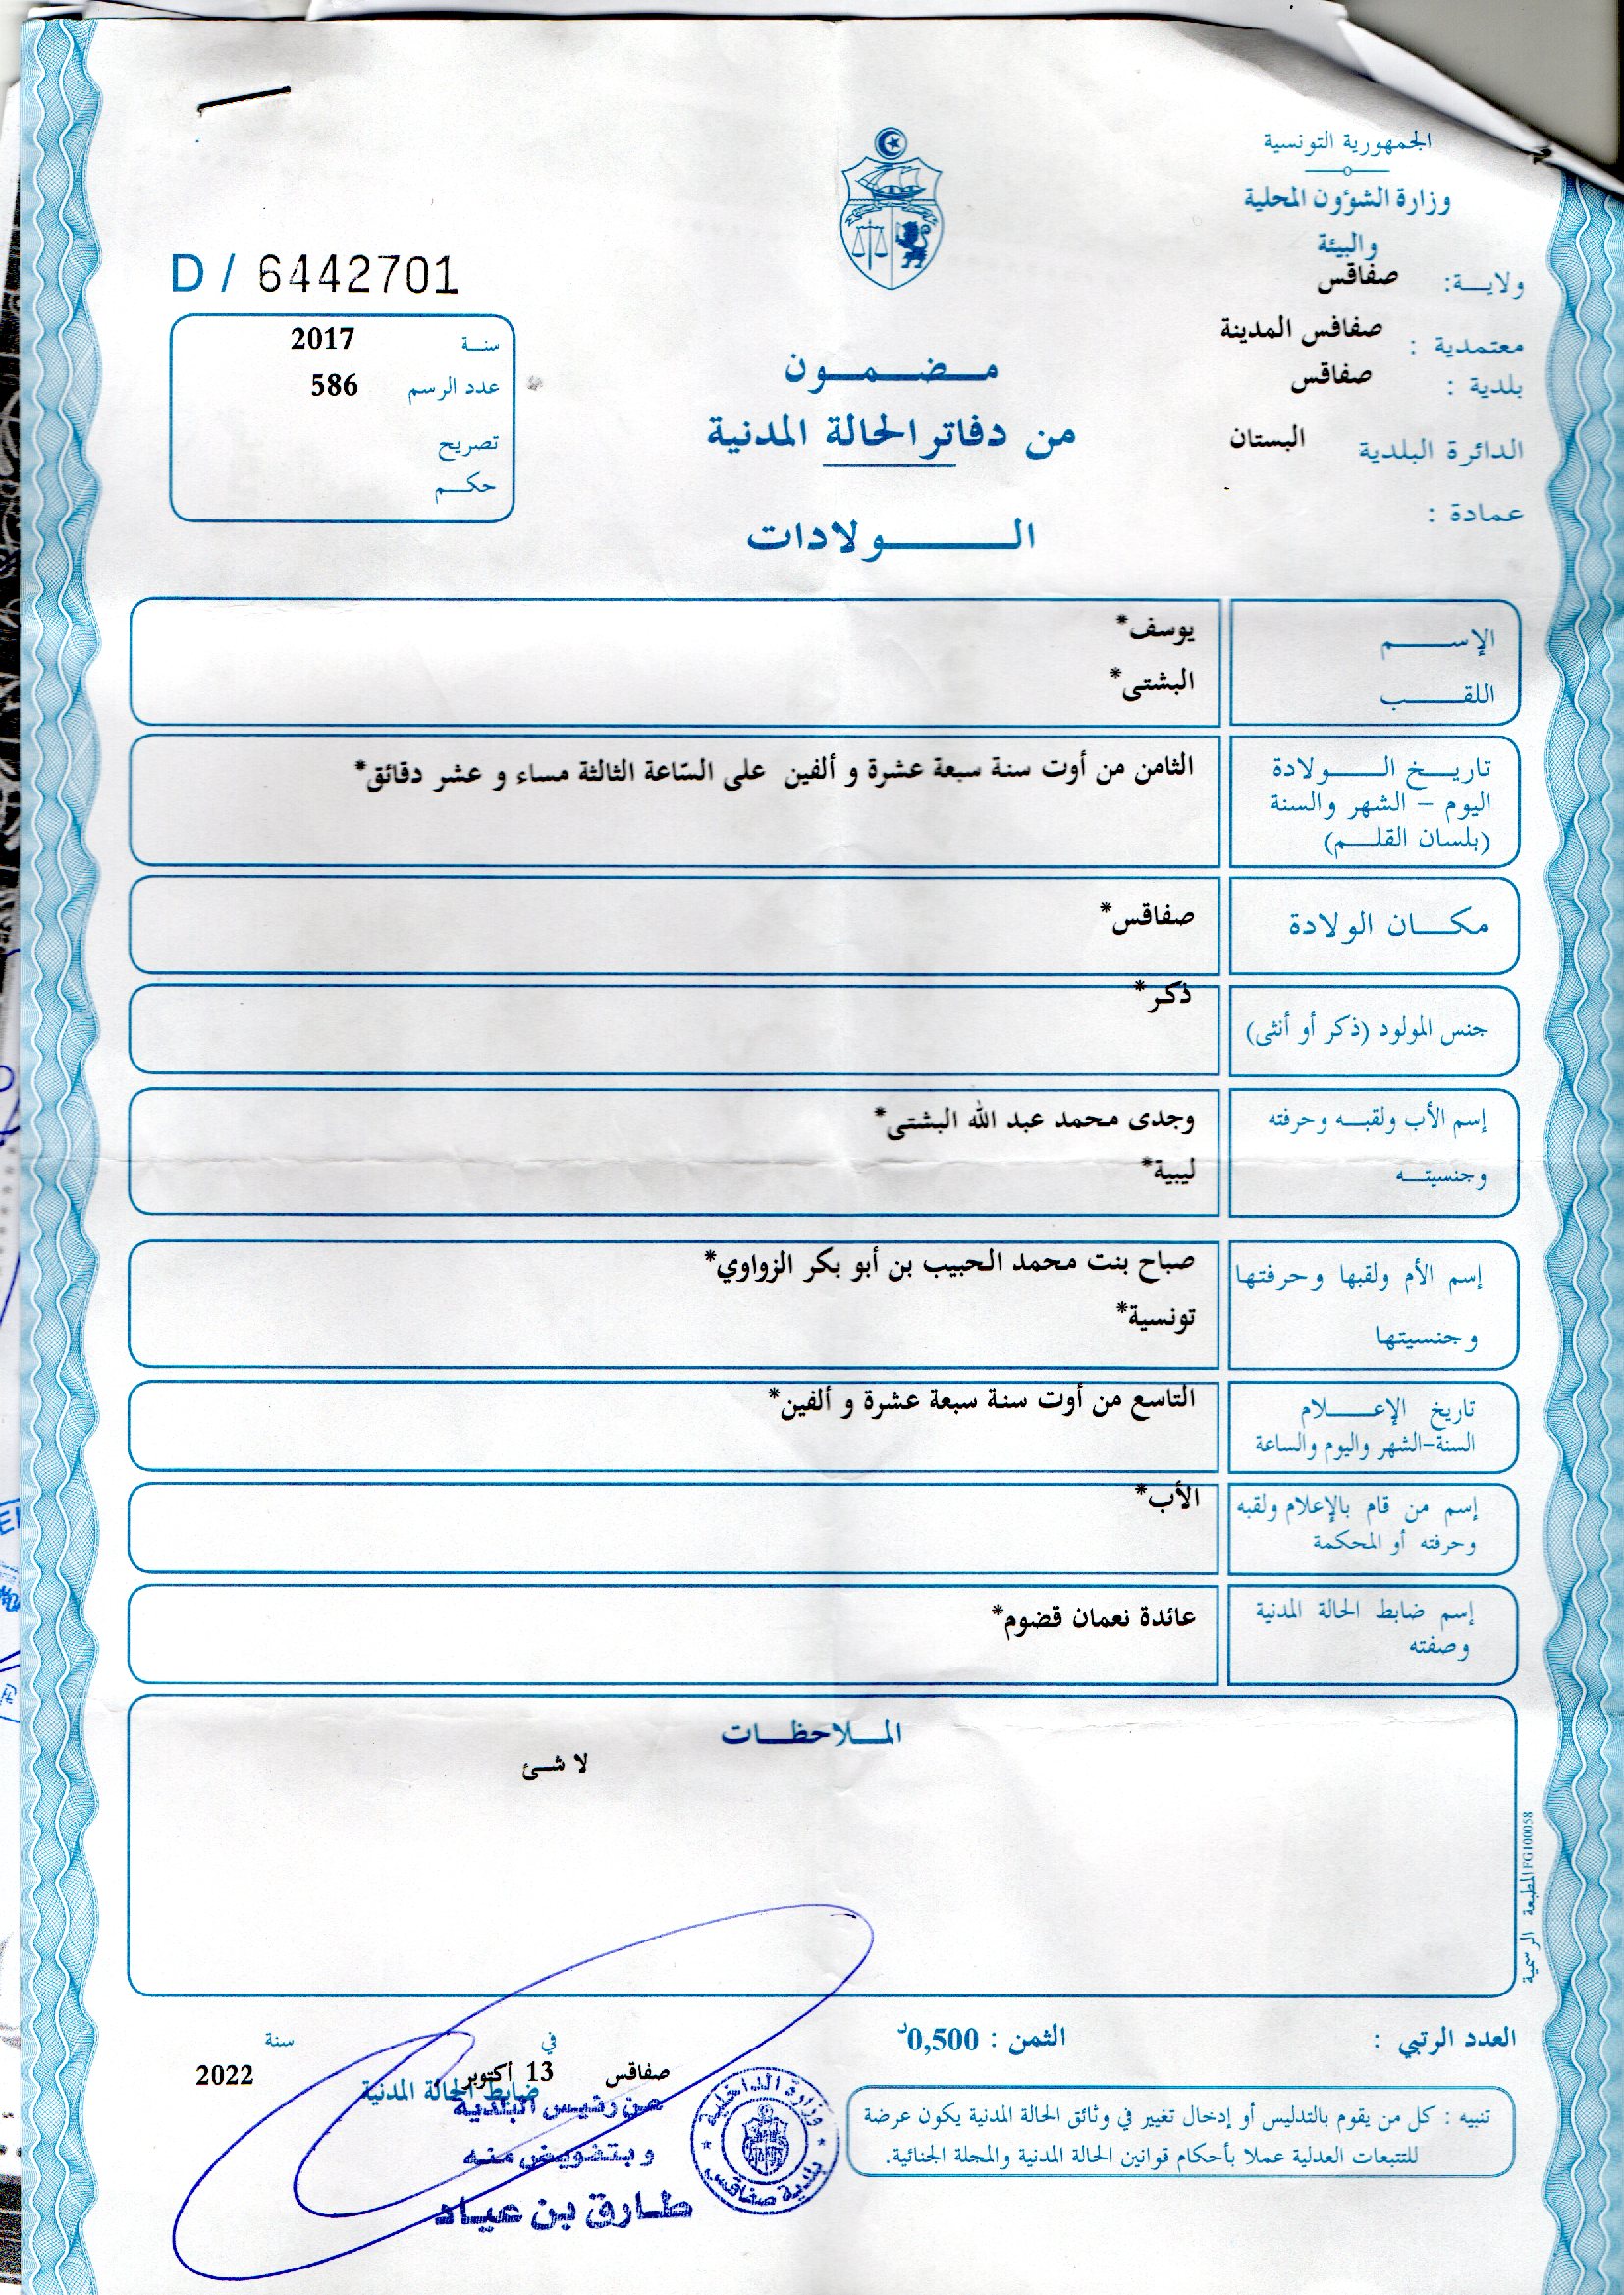 الجمهورية التونسية
وزارة الشؤون المحلية
والبيئة
ولاية: صفاقس
معتمدية : صفاقس المدينة
بلدية : صفاقس
الدائرة البلدية البستان
عمادة :
D / 6442701
سنة 2017
عدد الرسم 586
تصريح
حكم
مضمون
من دفاتر الحالة المدنية
الولادات
الإسم يوسف*
اللقب البشتى*
تاريخ الولادة الثامن من أوت سنة سبعة عشرة و ألفين على السّاعة الثالثة مساء و عشر دقائق*
اليوم - الشهر والسنة
(بلسان القلم)
مكان الولادة صفاقس*
جنس المولود (ذكر أو أنثى) ذكر*
إسم الأب ولقبه وحرفته وجدى محمد عبد الله البشتى*
وجنسيته ليبية*
إسم الأم ولقبها وحرفتها صباح بنت محمد الحبيب بن أبو بكر الزواوي*
وجنسيتها تونسية*
تاريخ الإعلام التاسع من أوت سنة سبعة عشرة و ألفين*
السنة-الشهر واليوم والساعة
إسم من قام بالإعلام ولقبه الأب*
وحرفته أو المحكمة
إسم ضابط الحالة المدنية عائدة نعمان قضوم*
وصفته
الملاحظات
لا شئ
المطبعة الرسمية FG100058
العدد الرتبي :
الثمن : 0,500د
في سنة
صفاقس 13 أكتوبر 2022
ضابط الحالة المدنية
عن رئيس البلدية
وبتفويض منه
طارق بن عياد
وزارة الداخلية
بلدية صفاقس
تنبيه : كل من يقوم بالتدليس أو إدخال تغيير في وثائق الحالة المدنية يكون عرضة
للتتبعات العدلية عملا بأحكام قوانين الحالة المدنية والمجلة الجنائية.